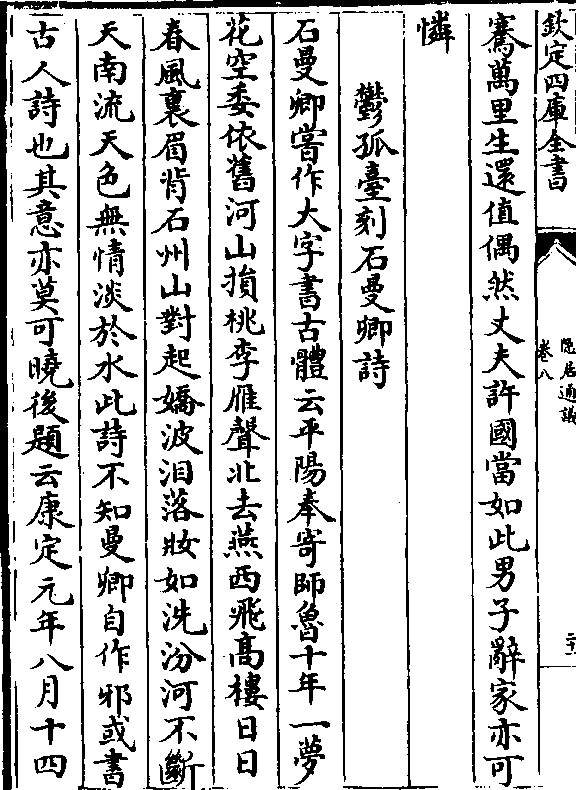 欽定四庫全書
隠居通議
卷八
二十
騫萬里生還值偶然丈夫許國當如此男子辭家亦可
憐
鬱孤臺刻石曼卿詩
石曼卿嘗作大字書古體云平陽奉寄師魯十年一夢
花空委依舊河山損桃李雁聲北去燕西飛髙樓日日
春風裏眉背石州山對起嬌波泪落妝如洗汾河不斷
天南流天色無情淡於水此詩不知曼卿自作邪或書
古人詩也其意亦莫可曉後題云康定元年八月十四